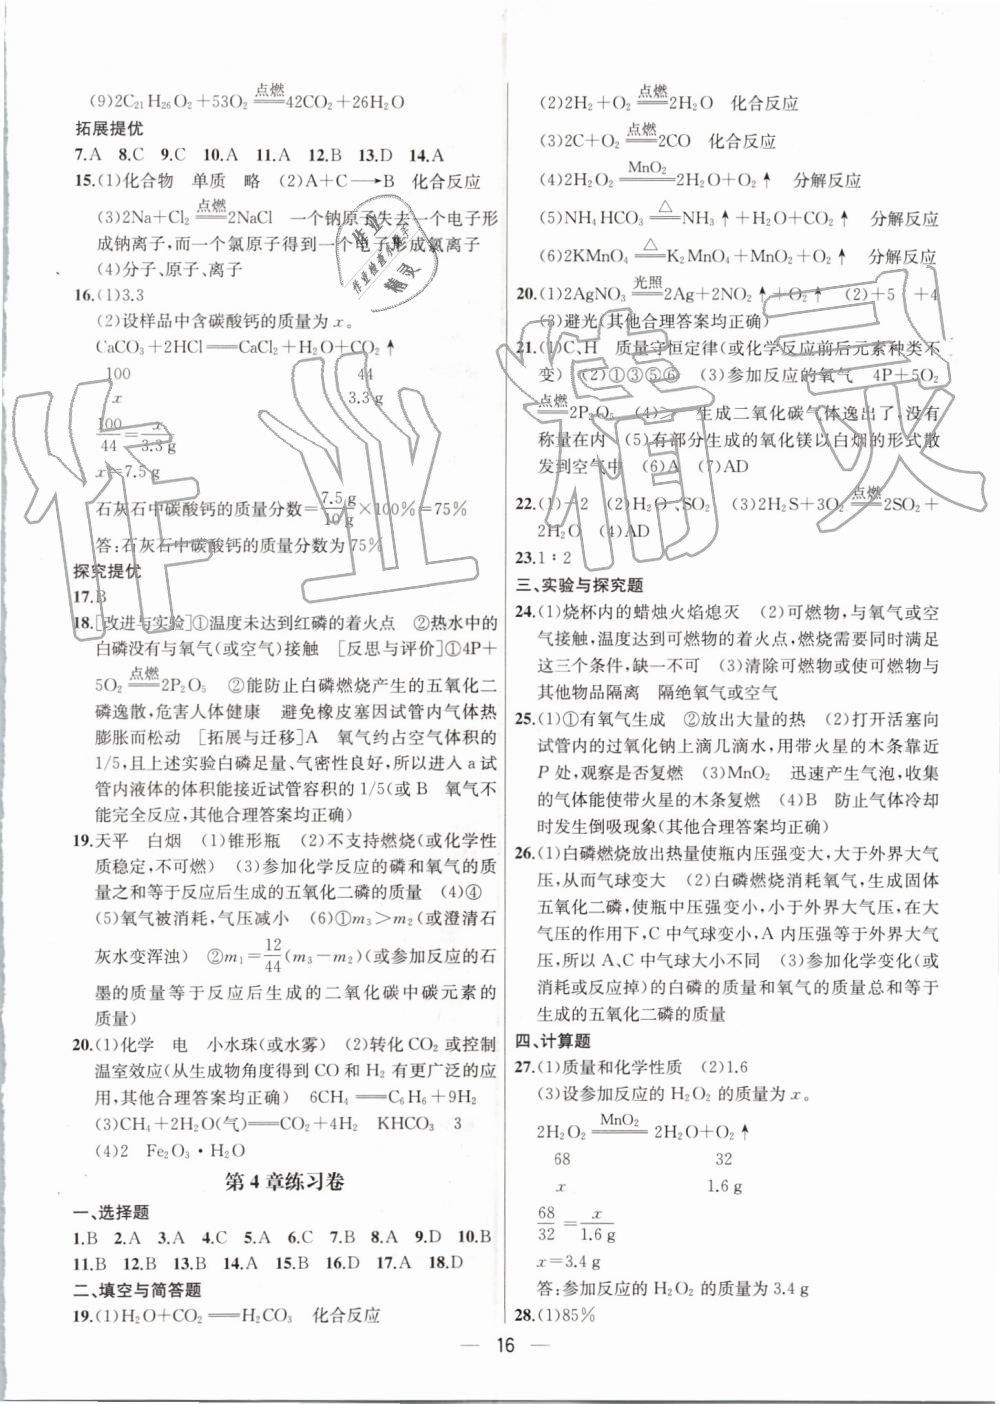 (9)2C₂₁H₂₆O₂+53O₂ ══点燃══ 42CO₂+26H₂O
拓展提优
7.A 8.C 9.C 10.A 11.A 12.B 13.D 14.A
15.(1)化合物 单质 略 (2)A+C⟶B 化合反应
(3)2Na+Cl₂ ══点燃══ 2NaCl 一个钠原子失去一个电子形
成钠离子,而一个氯原子得到一个电子形成氯离子
(4)分子、原子、离子
16.(1)3.3
(2)设样品中含碳酸钙的质量为 x。
CaCO₃+2HCl══CaCl₂+H₂O+CO₂↑
100 44
x 3.3 g
100/44=x/3.3 g
x=7.5 g
石灰石中碳酸钙的质量分数=7.5 g/10 g×100%=75%
答:石灰石中碳酸钙的质量分数为75%
探究提优
17.B
18.[改进与实验]①温度未达到红磷的着火点 ②热水中的
白磷没有与氧气(或空气)接触 [反思与评价]①4P+
5O₂ ══点燃══ 2P₂O₅ ②能防止白磷燃烧产生的五氧化二
磷逸散,危害人体健康 避免橡皮塞因试管内气体热
膨胀而松动 [拓展与迁移]A 氧气约占空气体积的
1/5,且上述实验白磷足量、气密性良好,所以进入a试
管内液体的体积能接近试管容积的1/5(或B 氧气不
能完全反应,其他合理答案均正确)
19.天平 白烟 (1)锥形瓶 (2)不支持燃烧(或化学性
质稳定,不可燃) (3)参加化学反应的磷和氧气的质
量之和等于反应后生成的五氧化二磷的质量 (4)④
(5)氧气被消耗,气压减小 (6)①m₃>m₂(或澄清石
灰水变浑浊) ②m₁=12/44(m₃-m₂)(或参加反应的石
墨的质量等于反应后生成的二氧化碳中碳元素的
质量)
20.(1)化学 电 小水珠(或水雾) (2)转化CO₂或控制
温室效应(从生成物角度得到CO和H₂有更广泛的应
用,其他合理答案均正确) 6CH₄══C₆H₆+9H₂
(3)CH₄+2H₂O(气)══CO₂+4H₂ KHCO₃ 3
(4)2 Fe₂O₃·H₂O
第4章练习卷
一、选择题
1.B 2.A 3.A 4.C 5.A 6.C 7.B 8.A 9.D 10.B
11.B 12.B 13.B 14.A 15.B 16.D 17.A 18.D
二、填空与简答题
19.(1)H₂O+CO₂══H₂CO₃ 化合反应
(2)2H₂+O₂ ══点燃══ 2H₂O 化合反应
(3)2C+O₂ ══点燃══ 2CO 化合反应
(4)2H₂O₂ ══MnO₂══ 2H₂O+O₂↑ 分解反应
(5)NH₄HCO₃ ══△══ NH₃↑+H₂O+CO₂↑ 分解反应
(6)2KMnO₄ ══△══ K₂MnO₄+MnO₂+O₂↑ 分解反应
20.(1)2AgNO₃ ══光照══ 2Ag+2NO₂↑+O₂↑ (2)+5 +4
(3)避光(其他合理答案均正确)
21.(1)C、H 质量守恒定律(或化学反应前后元素种类不
变) (2)①③⑤⑥ (3)参加反应的氧气 4P+5O₂
══点燃══ 2P₂O₅ (4)> 生成二氧化碳气体逸出了,没有
称量在内 (5)有部分生成的氧化镁以白烟的形式散
发到空气中 (6)A (7)AD
22.(1)-2 (2)H₂O、SO₂ (3)2H₂S+3O₂ ══点燃══ 2SO₂+
2H₂O (4)AD
23.1∶2
三、实验与探究题
24.(1)烧杯内的蜡烛火焰熄灭 (2)可燃物,与氧气或空
气接触,温度达到可燃物的着火点,燃烧需要同时满足
这三个条件,缺一不可 (3)清除可燃物或使可燃物与
其他物品隔离 隔绝氧气或空气
25.(1)①有氧气生成 ②放出大量的热 (2)打开活塞向
试管内的过氧化钠上滴几滴水,用带火星的木条靠近
P处,观察是否复燃 (3)MnO₂ 迅速产生气泡,收集
的气体能使带火星的木条复燃 (4)B 防止气体冷却
时发生倒吸现象(其他合理答案均正确)
26.(1)白磷燃烧放出热量使瓶内压强变大,大于外界大气
压,从而气球变大 (2)白磷燃烧消耗氧气,生成固体
五氧化二磷,使瓶中压强变小,小于外界大气压,在大
气压的作用下,C中气球变小,A内压强等于外界大气
压,所以A、C中气球大小不同 (3)参加化学变化(或
消耗或反应掉)的白磷的质量和氧气的质量总和等于
生成的五氧化二磷的质量
四、计算题
27.(1)质量和化学性质 (2)1.6
(3)设参加反应的H₂O₂的质量为 x。
2H₂O₂ ══MnO₂══ 2H₂O+O₂↑
68 32
x 1.6 g
68/32=x/1.6 g
x=3.4 g
答:参加反应的H₂O₂的质量为3.4 g
28.(1)85%
— 16 —
作业精灵